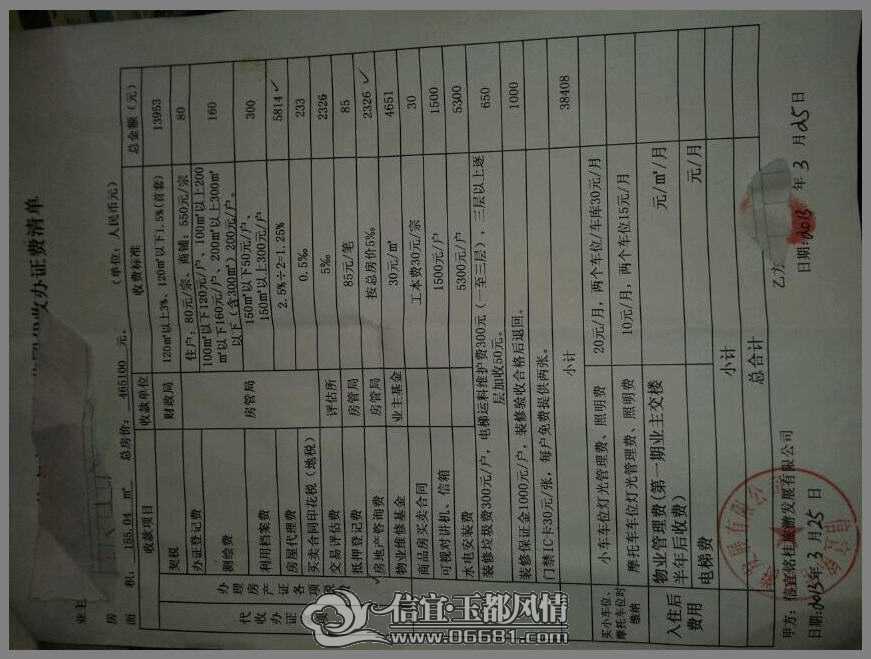 收办证费清单
业主
房
面 积： 155.04 ㎡ 总房价： 465100 元。 (单位：人民币元)
收款项目 收款单位 收费标准 总金额（元）
代收办证
办理房产证各项
契税 财政局 120㎡以上3%，120㎡以下1.5%(首套) 13953
办证登记费 房管局 住户：80元/宗、商铺：550元/宗 80
测绘费 100㎡以下120元/户、100㎡以上200㎡以下160元/户、200㎡以上300㎡以下（含300㎡）200元/户。 160
利用档案费 150㎡以下50元/户、150㎡以上300元/户 300
房屋代理费 2.5%÷2=1.25% 5814 ✓
买卖合同印花税(地税) 0.5‰ 233
交易评估费 评估所 5‰ 2326
抵押登记费 房管局 85元/笔 85
✓房地产咨询费 房管局 按总房价5‰ 2326 ✓
物业维修基金 业主基金 30元/㎡ 4651
商品房买卖合同 工本费30元/宗 30
可视对讲机、信箱 1500元/户 1500
水电安装费 5300元/户 5300
装修垃圾费300元/户，电梯运料维护费300元（一至三层），三层以上逐层加收50元。 650
装修保证金1000元/户，装修验收合格后退回。 1000
门禁IC卡30元/张，每户免费提供两张。
小计 38408
买小车位、摩托车车位时缴纳
小车车位灯光管理费、照明费 20元/月，两个车位/车库30元/月
摩托车车位灯光管理费、照明费 10元/月，两个车位15元/月
入住后费用
物业管理费(第一期业主交楼半年后收费) 元/㎡/月
电梯费 元/月
小计
总合计
甲方：信宜铭桂旅游发展有限公司 乙方
日期:2013年3月25日 日期:2013年3月25日
信宜·玉都风情
www.06681.com